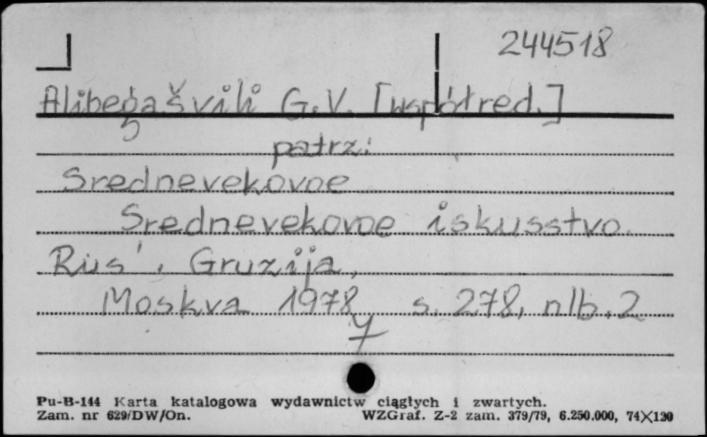 244518
Alibegašvili G.V. [współred.]
patrz:
Srednevekovoe
Srednevekovoe iskusstvo.
Rus'. Gruzija,
Moskva 1978 s. 278, nlb. 2
Pu-B-144 Karta katalogowa wydawnictw ciągłych i zwartych.
Zam. nr 629/DW/On. WZGraf. Z-2 zam. 379/79, 6.250.000, 74X120